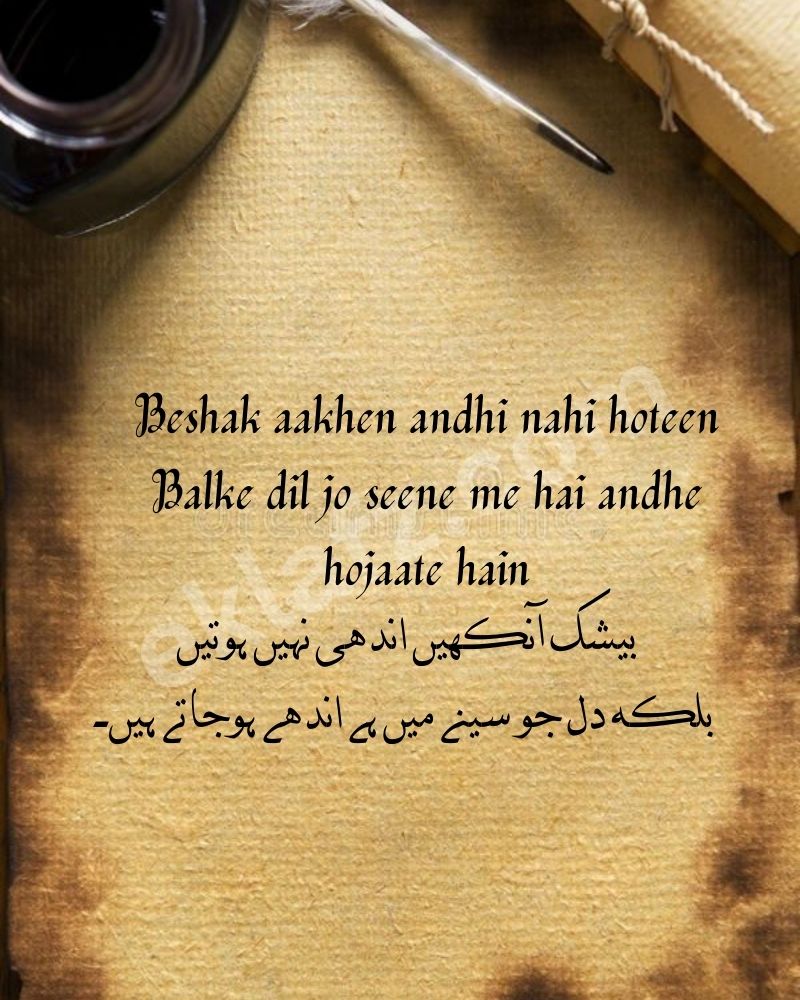 Beshak aakhen andhi nahi hoteen
Balke dil jo seene me hai andhe
hojaate hain
بیشک آنکھیں اندھی نہیں ہوتیں
بلکہ دل جو سینے میں ہے اندھے ہوجاتے ہیں۔